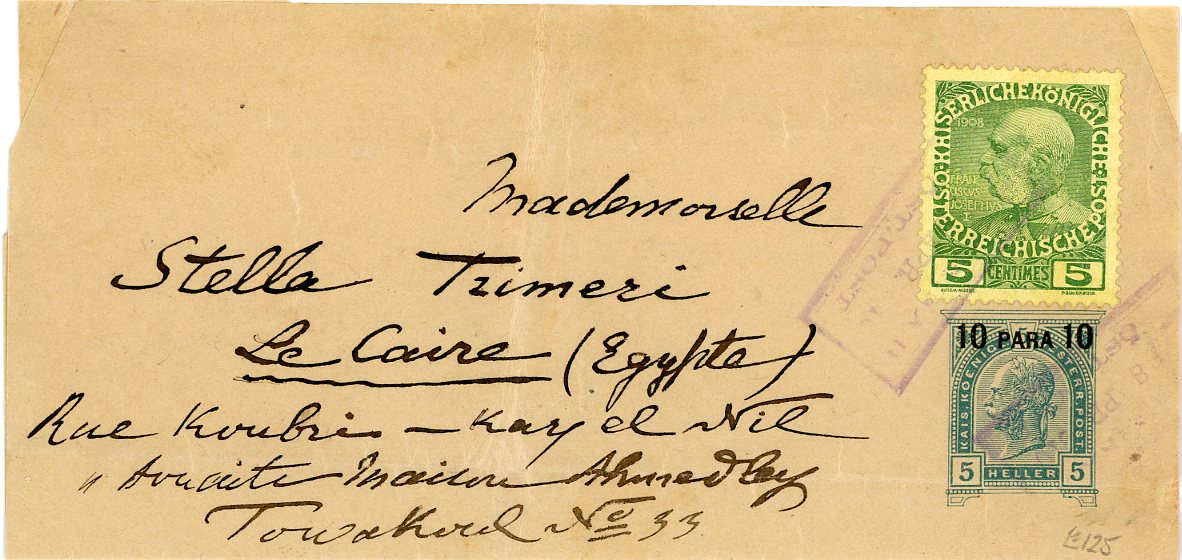 Mademoiselle
Stella Tzimeri
Le Caire (Egypte)
Rue Koubri - Kasr el Nil
Maison Ahmed bey
Towakoul No 33
KAISERLICHEKÖNIGLICHE
ÖSTERREICHISCHE POST
1908
FRAN
CISCUS
JOSEPHUS
I
5 CENTIMES 5
10 PARA 10
KAIS. KOENIGL. OESTERR. POST.
5 HELLER 5
£125